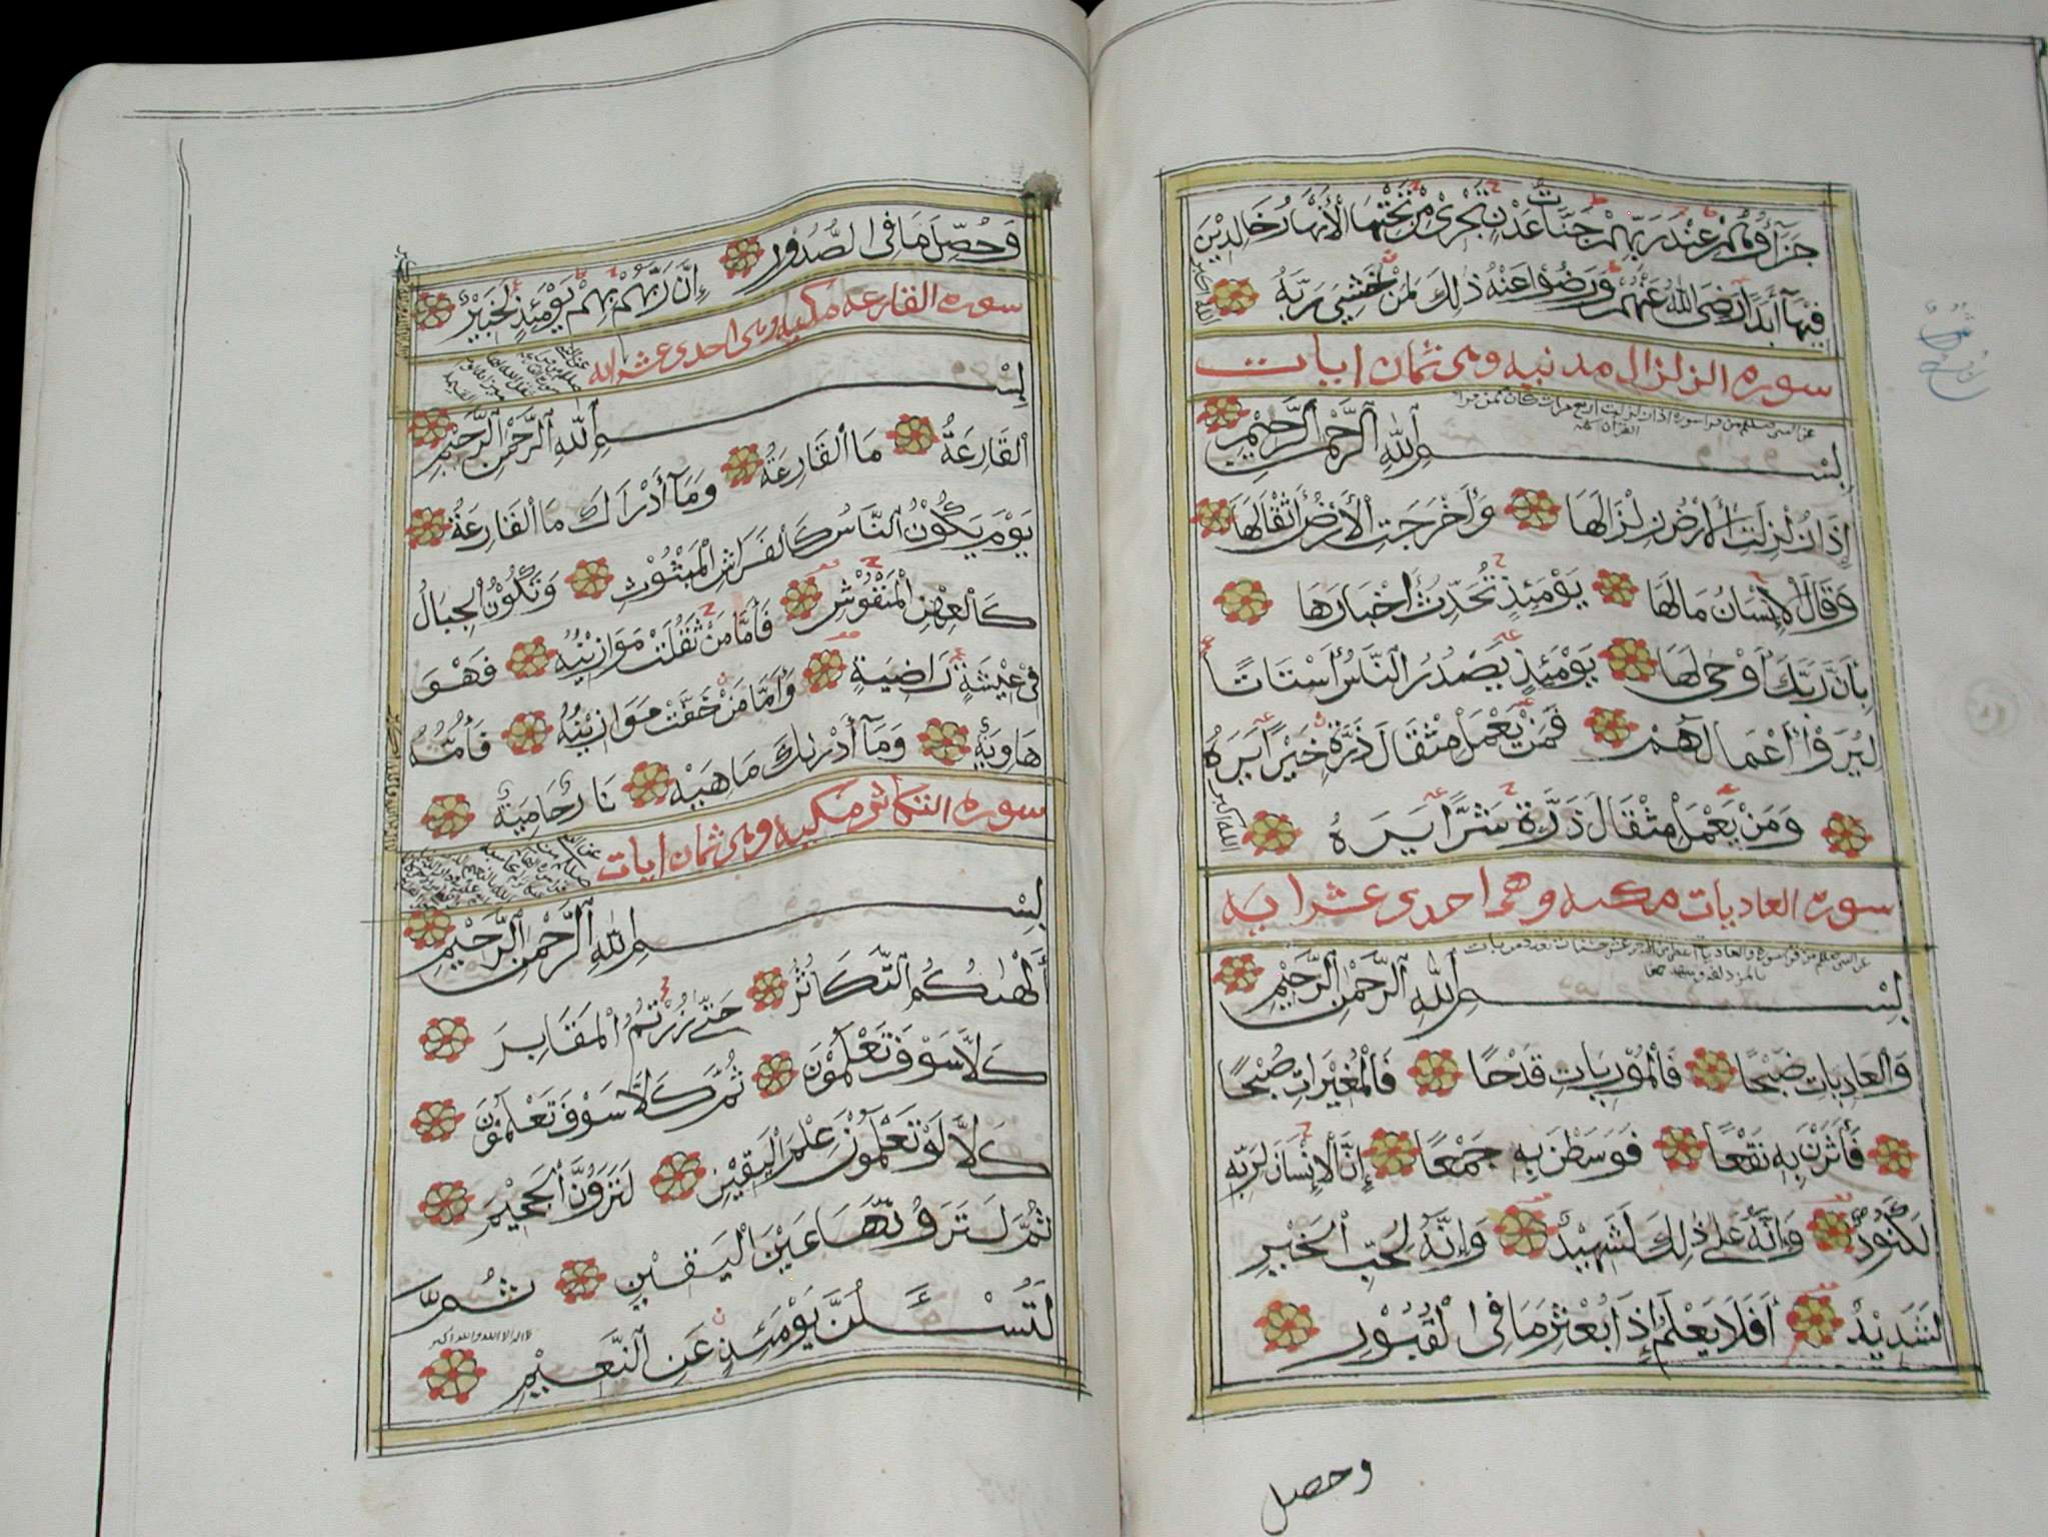 جَزَآؤُهُمْ عِنْدَ رَبِّهِمْ جَنَّاتُ عَدْنٍ تَجْرِىْ مِنْ تَحْتِهَا الْأَنْهَارُ خَالِدِيْنَ
فِيْهَآ أَبَدًا رَضِىَ اللهُ عَنْهُمْ وَرَضُوْا عَنْهُ ذٰلِكَ لِمَنْ خَشِيَ رَبَّهُ
الله اكبر
سورة الزلزال مدنيه وهى ثمان ايات
بِسْمِ اللهِ الرَّحْمٰنِ الرَّحِيْمِ
إِذَا زُلْزِلَتِ الْأَرْضُ زِلْزَالَهَا وَأَخْرَجَتِ الْأَرْضُ أَثْقَالَهَا
وَقَالَ الْإِنْسَانُ مَالَهَا يَوْمَئِذٍ تُحَدِّثُ أَخْبَارَهَا
بِأَنَّ رَبَّكَ أَوْحٰى لَهَا يَوْمَئِذٍ يَصْدُرُ النَّاسُ أَشْتَاتًا
لِيُرَوْا أَعْمَالَهُمْ فَمَنْ يَعْمَلْ مِثْقَالَ ذَرَّةٍ خَيْرًا يَرَهُ
وَمَنْ يَعْمَلْ مِثْقَالَ ذَرَّةٍ شَرًّا يَرَهُ
الله اكبر
سورة العاديات مكيه وهى احدى عشر ايه
بِسْمِ اللهِ الرَّحْمٰنِ الرَّحِيْمِ
وَالْعَادِيَاتِ ضَبْحًا فَالْمُوْرِيَاتِ قَدْحًا فَالْمُغِيْرَاتِ صُبْحًا
فَأَثَرْنَ بِهِ نَقْعًا فَوَسَطْنَ بِهِ جَمْعًا إِنَّ الْإِنْسَانَ لِرَبِّهِ
لَكَنُوْدٌ وَإِنَّهُ عَلٰى ذٰلِكَ لَشَهِيْدٌ وَإِنَّهُ لِحُبِّ الْخَيْرِ
لَشَدِيْدٌ أَفَلَا يَعْلَمُ إِذَا بُعْثِرَ مَا فِى الْقُبُوْرِ
وحصل
وَحُصِّلَ مَا فِى الصُّدُوْرِ إِنَّ رَبَّهُمْ بِهِمْ يَوْمَئِذٍ لَخَبِيْرٌ
سورة القارعه مكيه وهى احدى عشر ايه
بِسْمِ اللهِ الرَّحْمٰنِ الرَّحِيْمِ
اَلْقَارِعَةُ مَا الْقَارِعَةُ وَمَآ أَدْرَاكَ مَا الْقَارِعَةُ
يَوْمَ يَكُوْنُ النَّاسُ كَالْفَرَاشِ الْمَبْثُوْثِ وَتَكُوْنُ الْجِبَالُ
كَالْعِهْنِ الْمَنْفُوْشِ فَأَمَّا مَنْ ثَقُلَتْ مَوَازِيْنُهُ فَهُوَ
فِىْ عِيْشَةٍ رَاضِيَةٍ وَأَمَّا مَنْ خَفَّتْ مَوَازِيْنُهُ فَأُمُّهُ
هَاوِيَةٌ وَمَآ أَدْرٰىكَ مَاهِيَهْ نَارٌ حَامِيَةٌ
سورة التكاثر مكيه وهى ثمان ايات
بِسْمِ اللهِ الرَّحْمٰنِ الرَّحِيْمِ
أَلْهٰىكُمُ التَّكَاثُرُ حَتّٰى زُرْتُمُ الْمَقَابِرَ
كَلَّا سَوْفَ تَعْلَمُوْنَ ثُمَّ كَلَّا سَوْفَ تَعْلَمُوْنَ
كَلَّا لَوْ تَعْلَمُوْنَ عِلْمَ الْيَقِيْنِ لَتَرَوُنَّ الْجَحِيْمَ
ثُمَّ لَتَرَوُنَّهَا عَيْنَ الْيَقِيْنِ ثُمَّ
لَتُسْـَٔلُنَّ يَوْمَئِذٍ عَنِ النَّعِيْمِ
لا اله الا الله والله اكبر